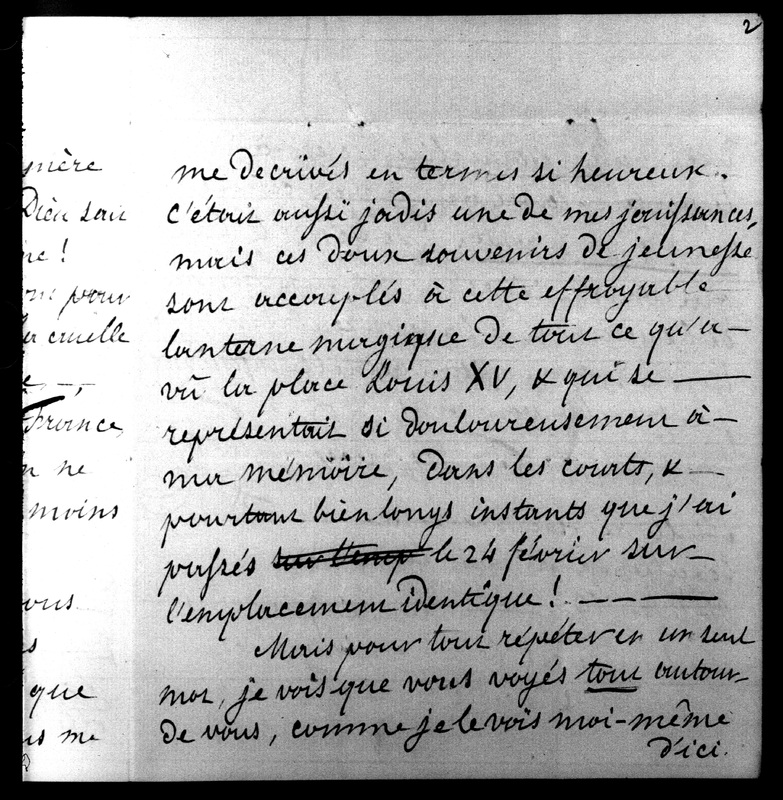 2
mère
Dieu sait
ne !
pour
la cruelle
France,
n ne
moins
ous
s
que
us me
me decrivés en termes si heureux..
C'était aussi jadis une de mes jouissances,
mais ces doux souvenirs de jeunesse
sont accouplés à cette effroyable
lanterne magique de tout ce qu'a—
vû la place Louis XV, & qui se —
représentait si douloureusement à—
ma mémoire, dans les courts, & —
pourtant bien longs instants que j'ai
passés sur l'emp le 24 février sur—
l'emplacement identique ! — — —
Mais pour tout répéter en un seul
mot, je vois que vous voyés tout autour—
de vous, comme je le vois moi-même
d'ici.